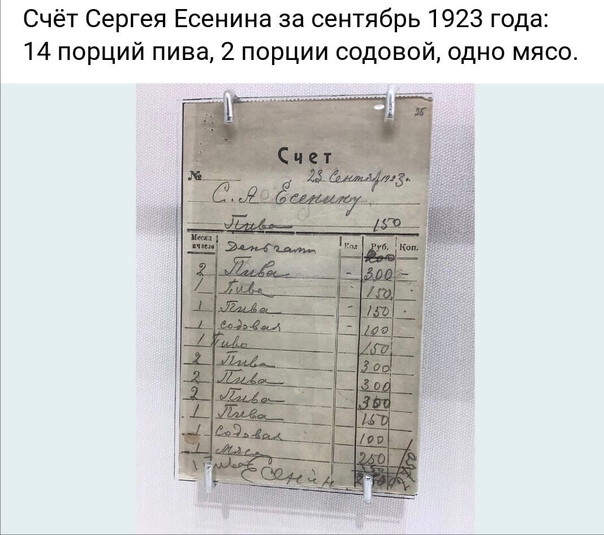 Счёт Сергея Есенина за сентябрь 1923 года:
14 порций пива, 2 порции содовой, одно мясо.
25
Счет
№ 23 Сентяб
С. А Есенину
Пива 150
Месяц и число Кол Руб. Коп.
Деньгами 200
2 Пива - 300 -
1 Пива 150
1 Пива - 150
1 Содовая - 100
1 Пиво 150
2 Пива 300
2 Пива 300
2 Пива 300
1 Пива 150
1 Содовая 100
1 Мясо 250
1 Пиво
Есенин